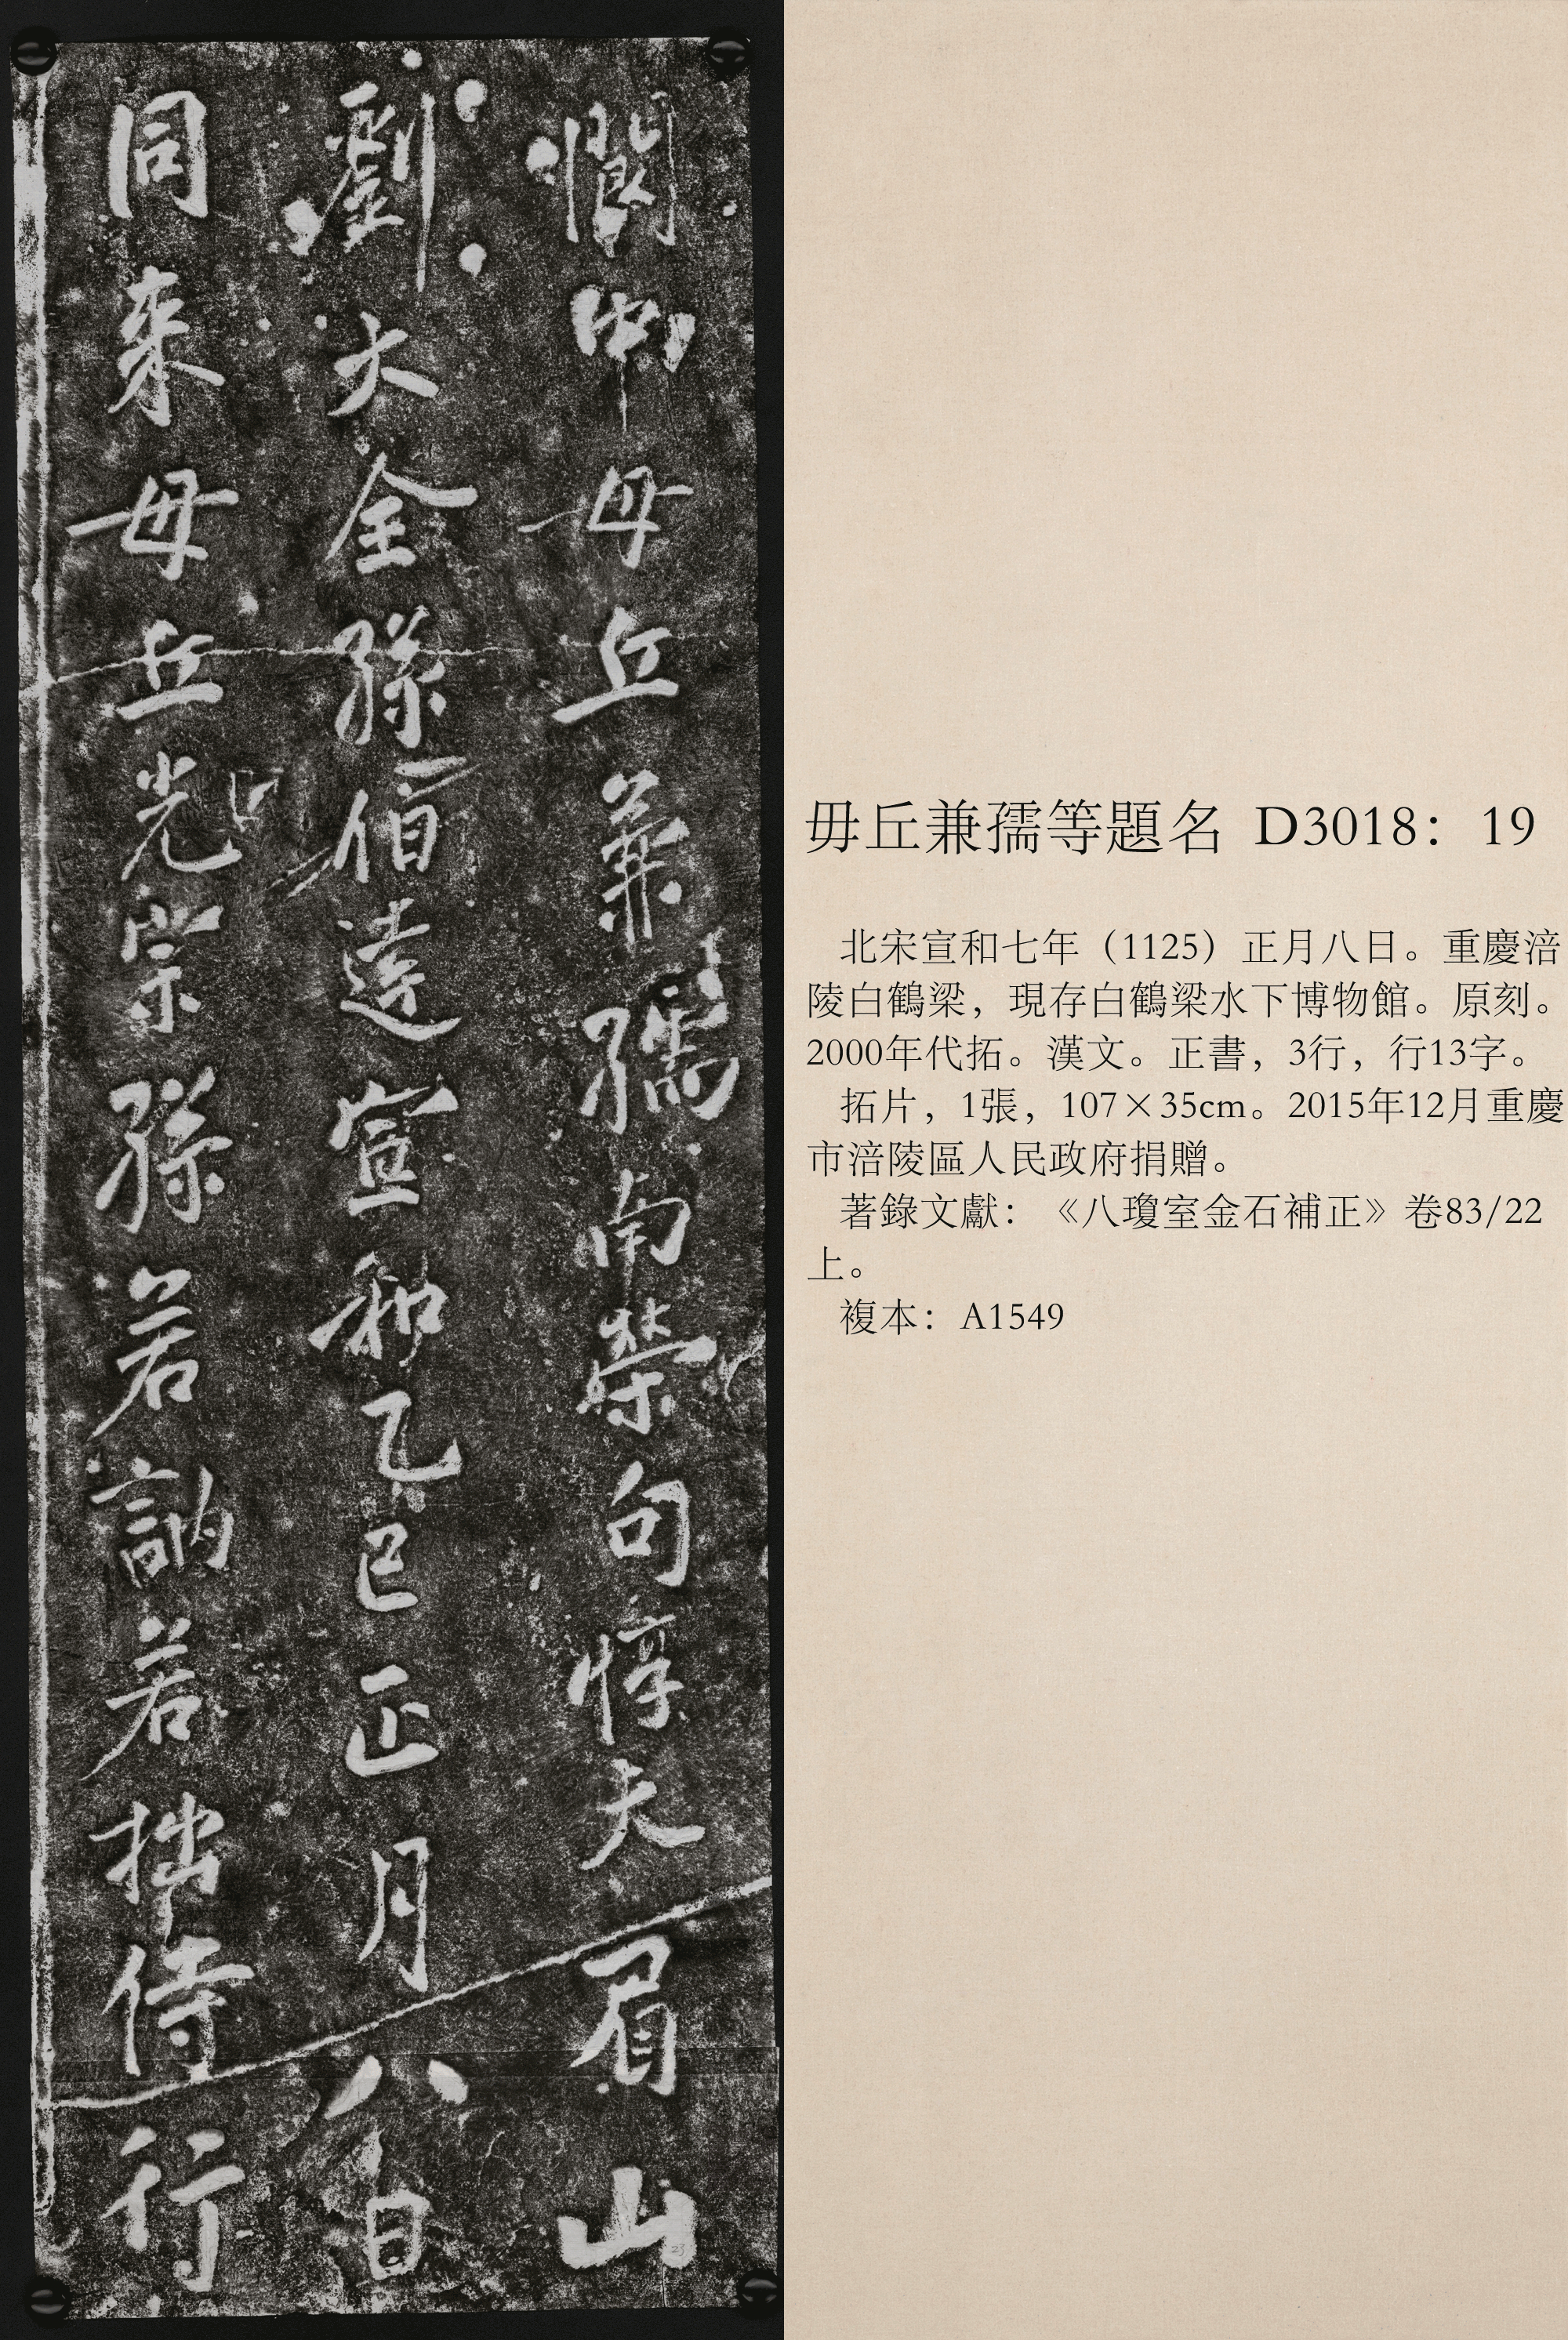 閬中毋丘兼孺南榮句惇夫眉山
劉大全孫伯達宣和乙巳正月八日
同来毋丘光宗孫若訥若拙侍行
23
毋丘兼孺等題名 D3018：19
北宋宣和七年（1125）正月八日。重慶涪
陵白鶴梁，現存白鶴梁水下博物館。原刻。
2000年代拓。漢文。正書，3行，行13字。
拓片，1張，107×35cm。2015年12月重慶
市涪陵區人民政府捐贈。
著錄文獻：《八瓊室金石補正》卷83/22
上。
複本：A1549